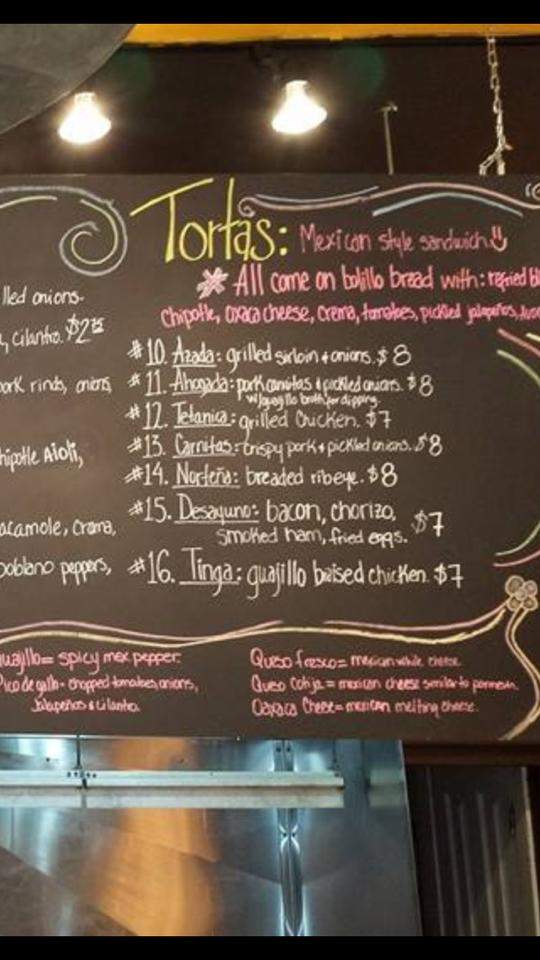 Tortas: Mexican style sandwich
All come on bolillo bread with: refried
Chipotle, oxaca cheese, crema, tomatoes, pickled jalapeños,
lled onions.
, cilantro. $2.75
ork rinds, onions,
hipotle Aioli,
acamole, crema,
oblano peppers,
#10. Azada: grilled sirloin + onions. $8
#11. Ahogada: pork carnitas & pickled onions. $8
w/guajillo broth for dipping.
#12. Tetanica: grilled Chicken. $7
#13. Carnitas: crispy pork + pickled onions. $8
#14. Norteña: breaded ribeye. $8
#15. Desayuno: bacon, chorizo,
smoked ham, fried eggs. $7
#16. Tinga: guajillo braised chicken. $7
uajillo = spicy mex pepper.
Pico de gallo = chopped tomatoes, onions,
Jalapeños & cilantro.
Queso fresco = mexican white cheese.
Queso Cotija = mexican cheese similar to parmesan.
Oaxaca Cheese = mexican melting cheese.